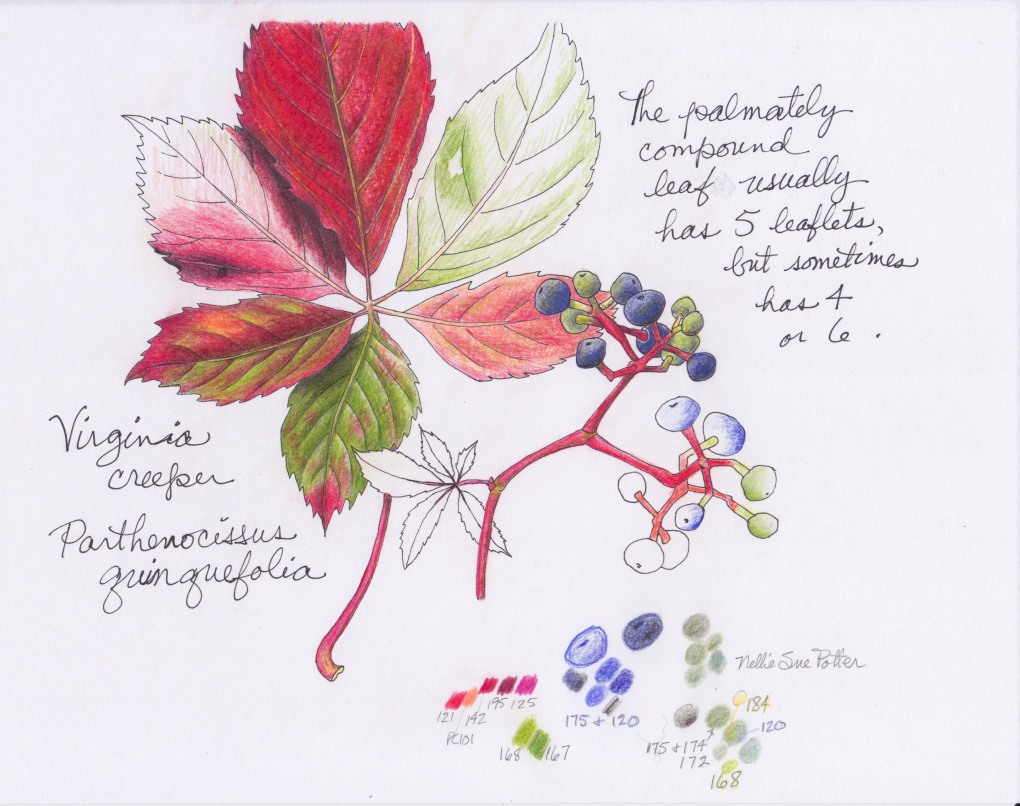 The palmately
compound
leaf usually
has 5 leaflets,
but sometimes
has 4
or 6.
Virginia
creeper
Parthenocissus
quinquefolia
Nellie Sue Potter
195 125
121 142
PC101
168 167
175 + 120
184
120
175 + 174
172
168